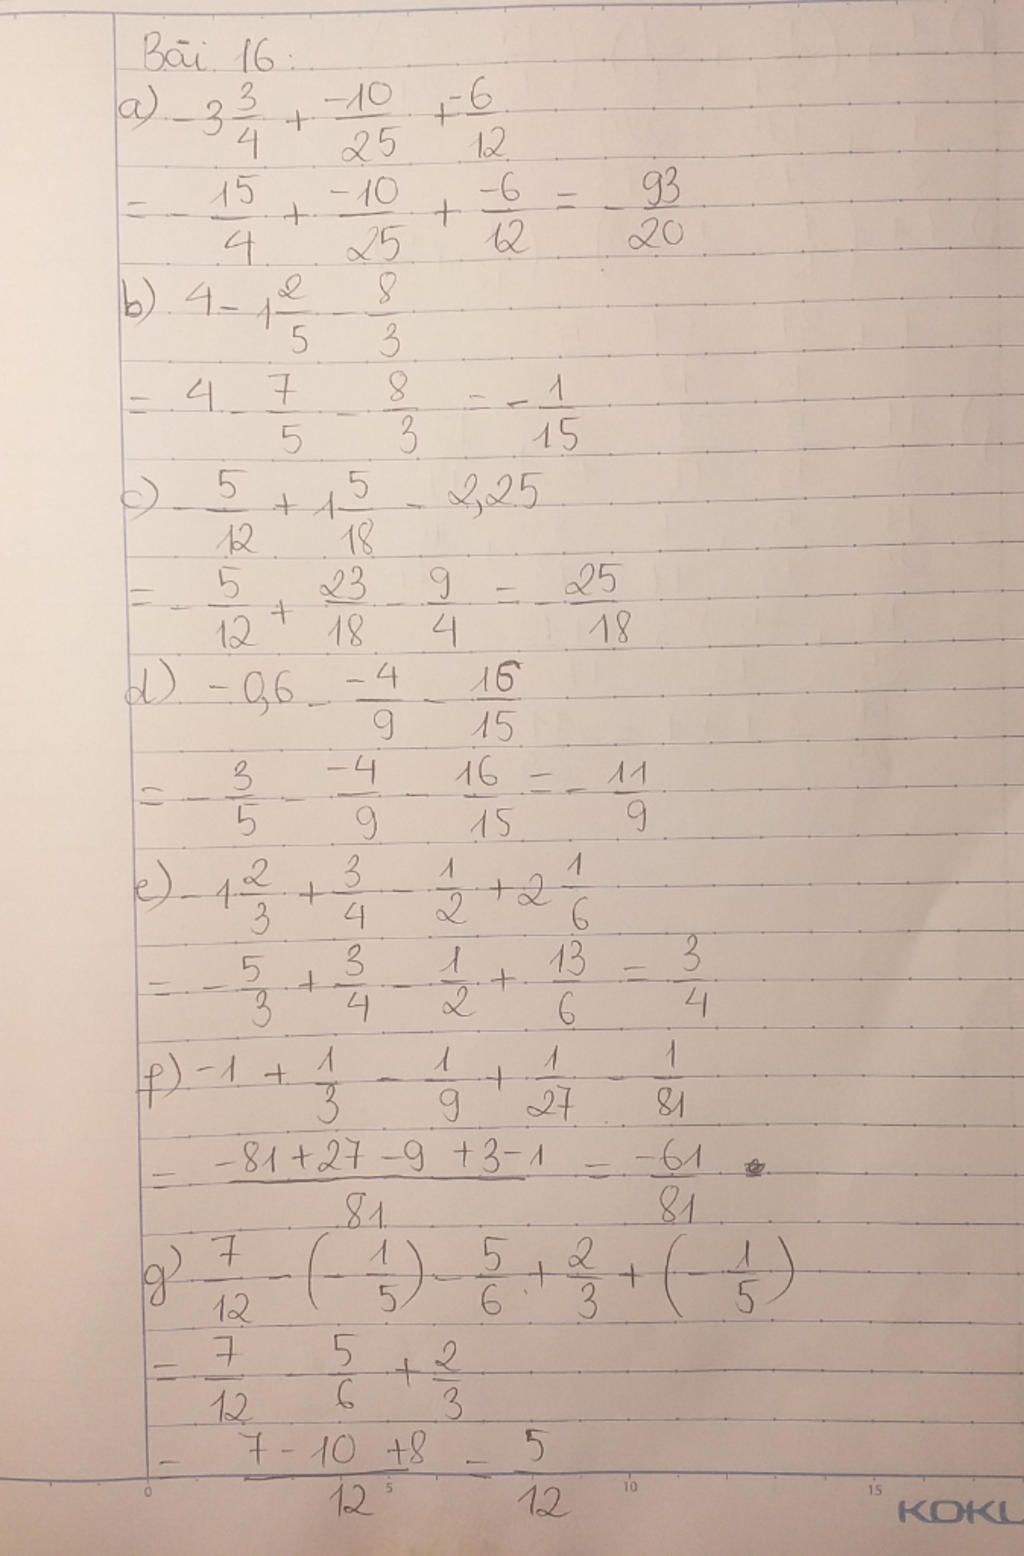 Bài 16:
a) -3 3/4 + -10/25 + -6/12
= - 15/4 + -10/25 + -6/12 = - 93/20
b) 4 - 1 2/5 - 8/3
= 4 - 7/5 - 8/3 = - 1/15
c) - 5/12 + 1 5/18 - 2,25
= - 5/12 + 23/18 - 9/4 = - 25/18
d) -0,6 - -4/9 - 16/15
= - 3/5 - -4/9 - 16/15 = - 11/9
e) -1 2/3 + 3/4 - 1/2 + 2 1/6
= - 5/3 + 3/4 - 1/2 + 13/6 = 3/4
f) -1 + 1/3 - 1/9 + 1/27 - 1/81
= -81+27-9+3-1/81 = -61/81
g) 7/12 - (- 1/5) - 5/6 + 2/3 + (- 1/5)
= 7/12 - 5/6 + 2/3
= 7-10+8/12 = 5/12
0 5 10 15